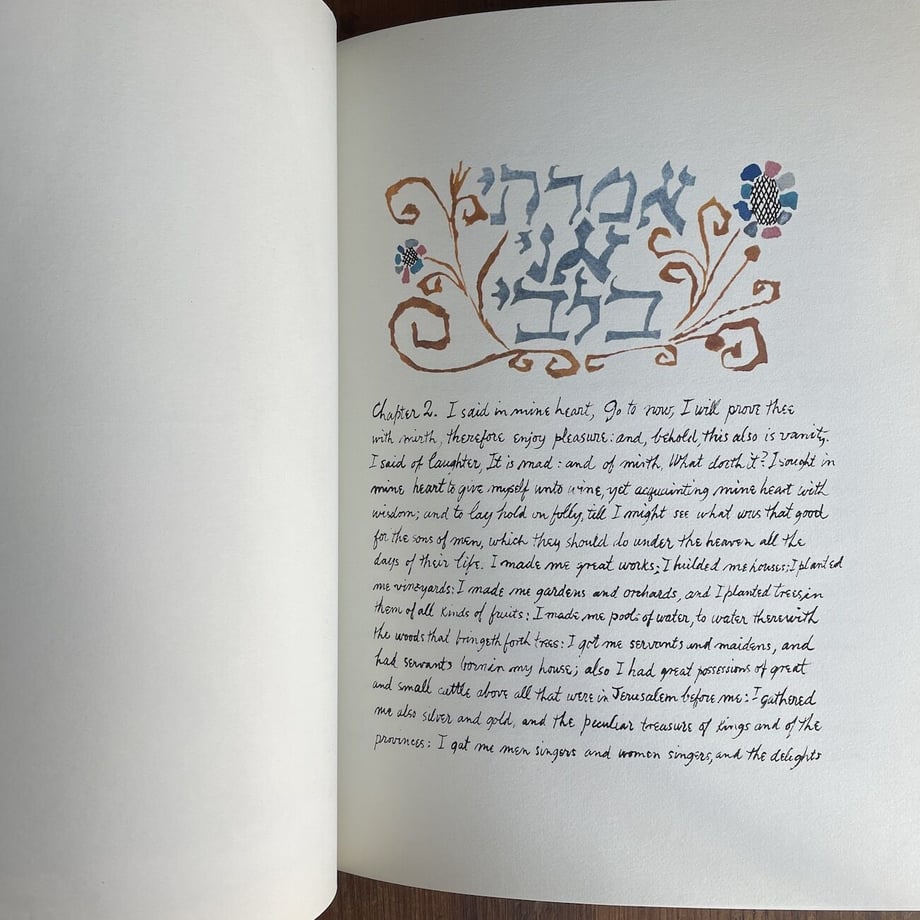 אמרתי
אני
בלבי
Chapter 2. I said in mine heart, Go to now, I will prove thee
with mirth, therefore enjoy pleasure: and, behold, this also is vanity.
I said of laughter, It is mad: and of mirth, What doeth it? I sought in
mine heart to give myself unto wine, yet acquainting mine heart with
wisdom; and to lay hold on folly, till I might see what was that good
for the sons of men, which they should do under the heaven all the
days of their life. I made me great works; I builded me houses; I planted
me vineyards: I made me gardens and orchards, and I planted trees in
them of all kinds of fruits: I made me pools of water, to water therewith
the woods that bringeth forth trees: I got me servants and maidens, and
had servants born in my house; also I had great possessions of great
and small cattle above all that were in Jerusalem before me: I gathered
me also silver and gold, and the peculiar treasure of kings and of the
provinces: I gat me men singers and women singers, and the delights